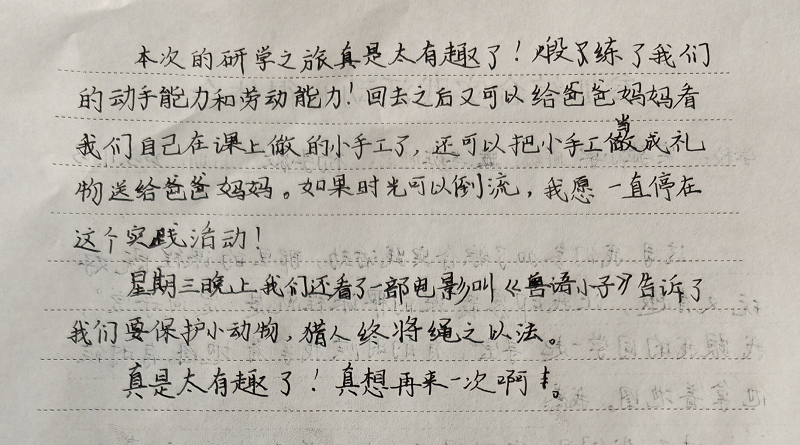 本次的研学之旅真是太有趣了！煅练了我们
的动手能力和劳动能力！回去之后又可以给爸爸妈妈看
我们自己在课上做的小手工了，还可以把小手工当成礼
物送给爸爸妈妈。如果时光可以倒流，我愿一直停在
这个实践活动！
星期三晚上我们还看了一部电影叫《兽语小子》告诉了
我们要保护小动物，猎人终将绳之以法。
真是太有趣了！真想再来一次啊！